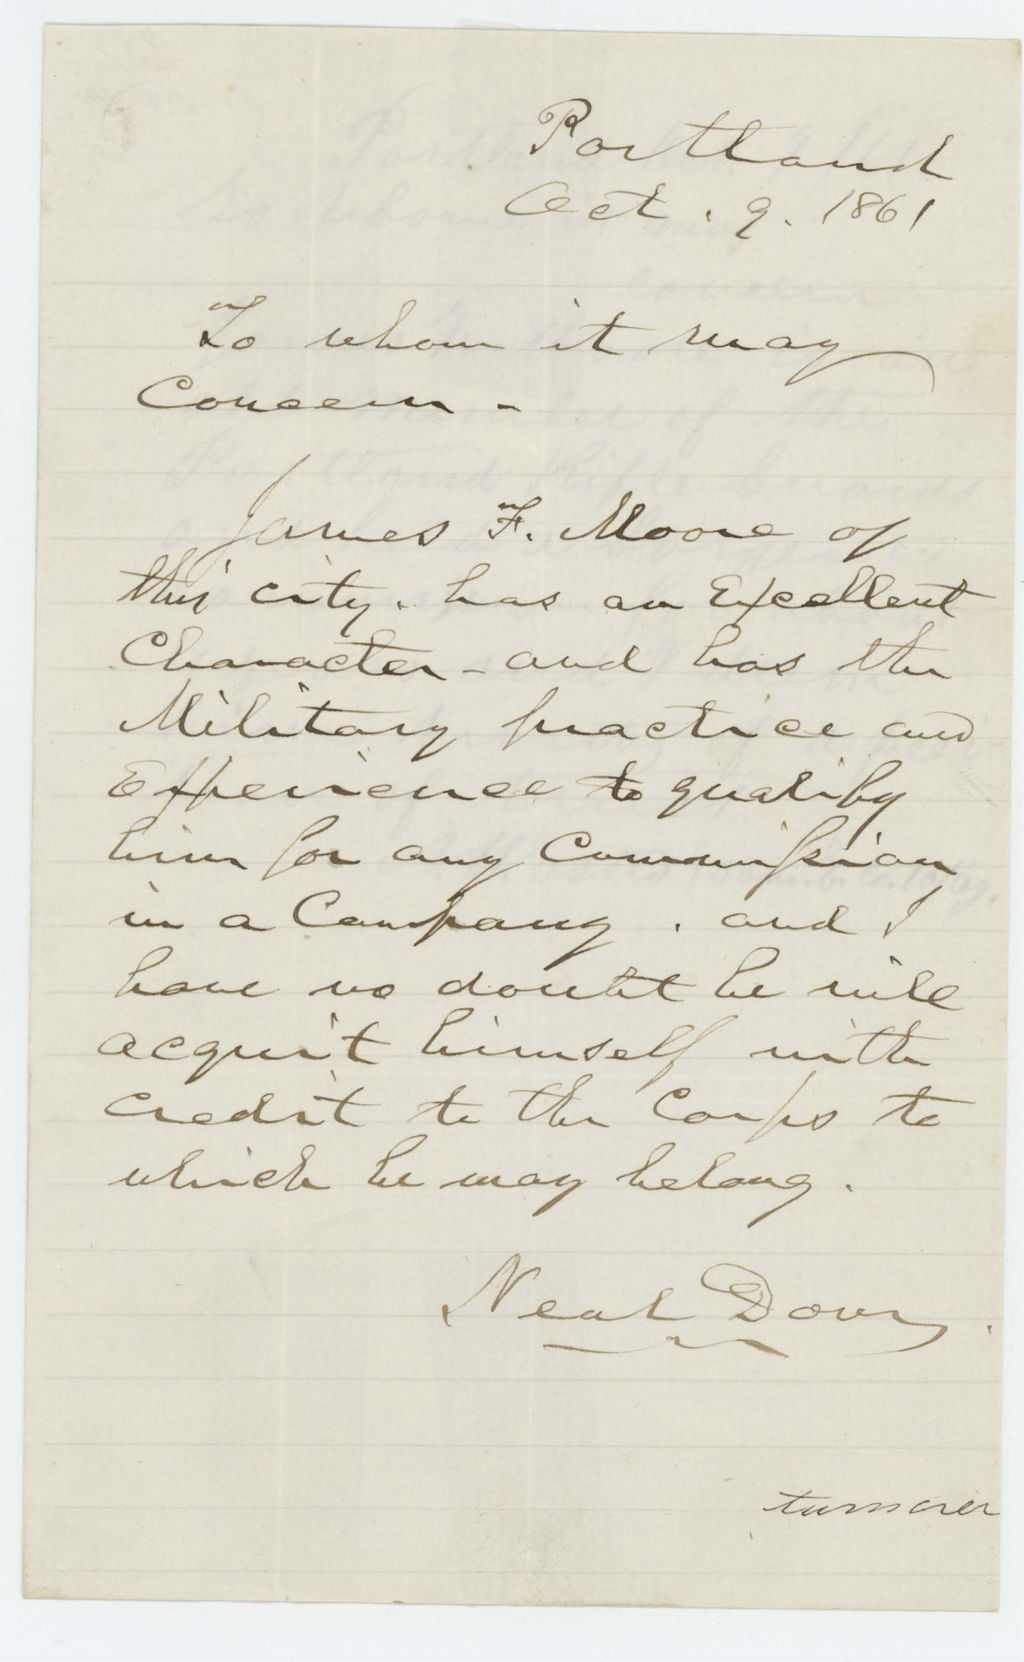 Portland
Oct. 9. 1861
To whom it may
Concern -
James F. Moore of
this city. has an Excellent
Character - and has the
Military practice and
Experience to qualify
him for any Commission
in a Company. and I
have no doubt he will
acquit himself with
credit to the Corps to
which he may belong.
Neal Dow.
turnover